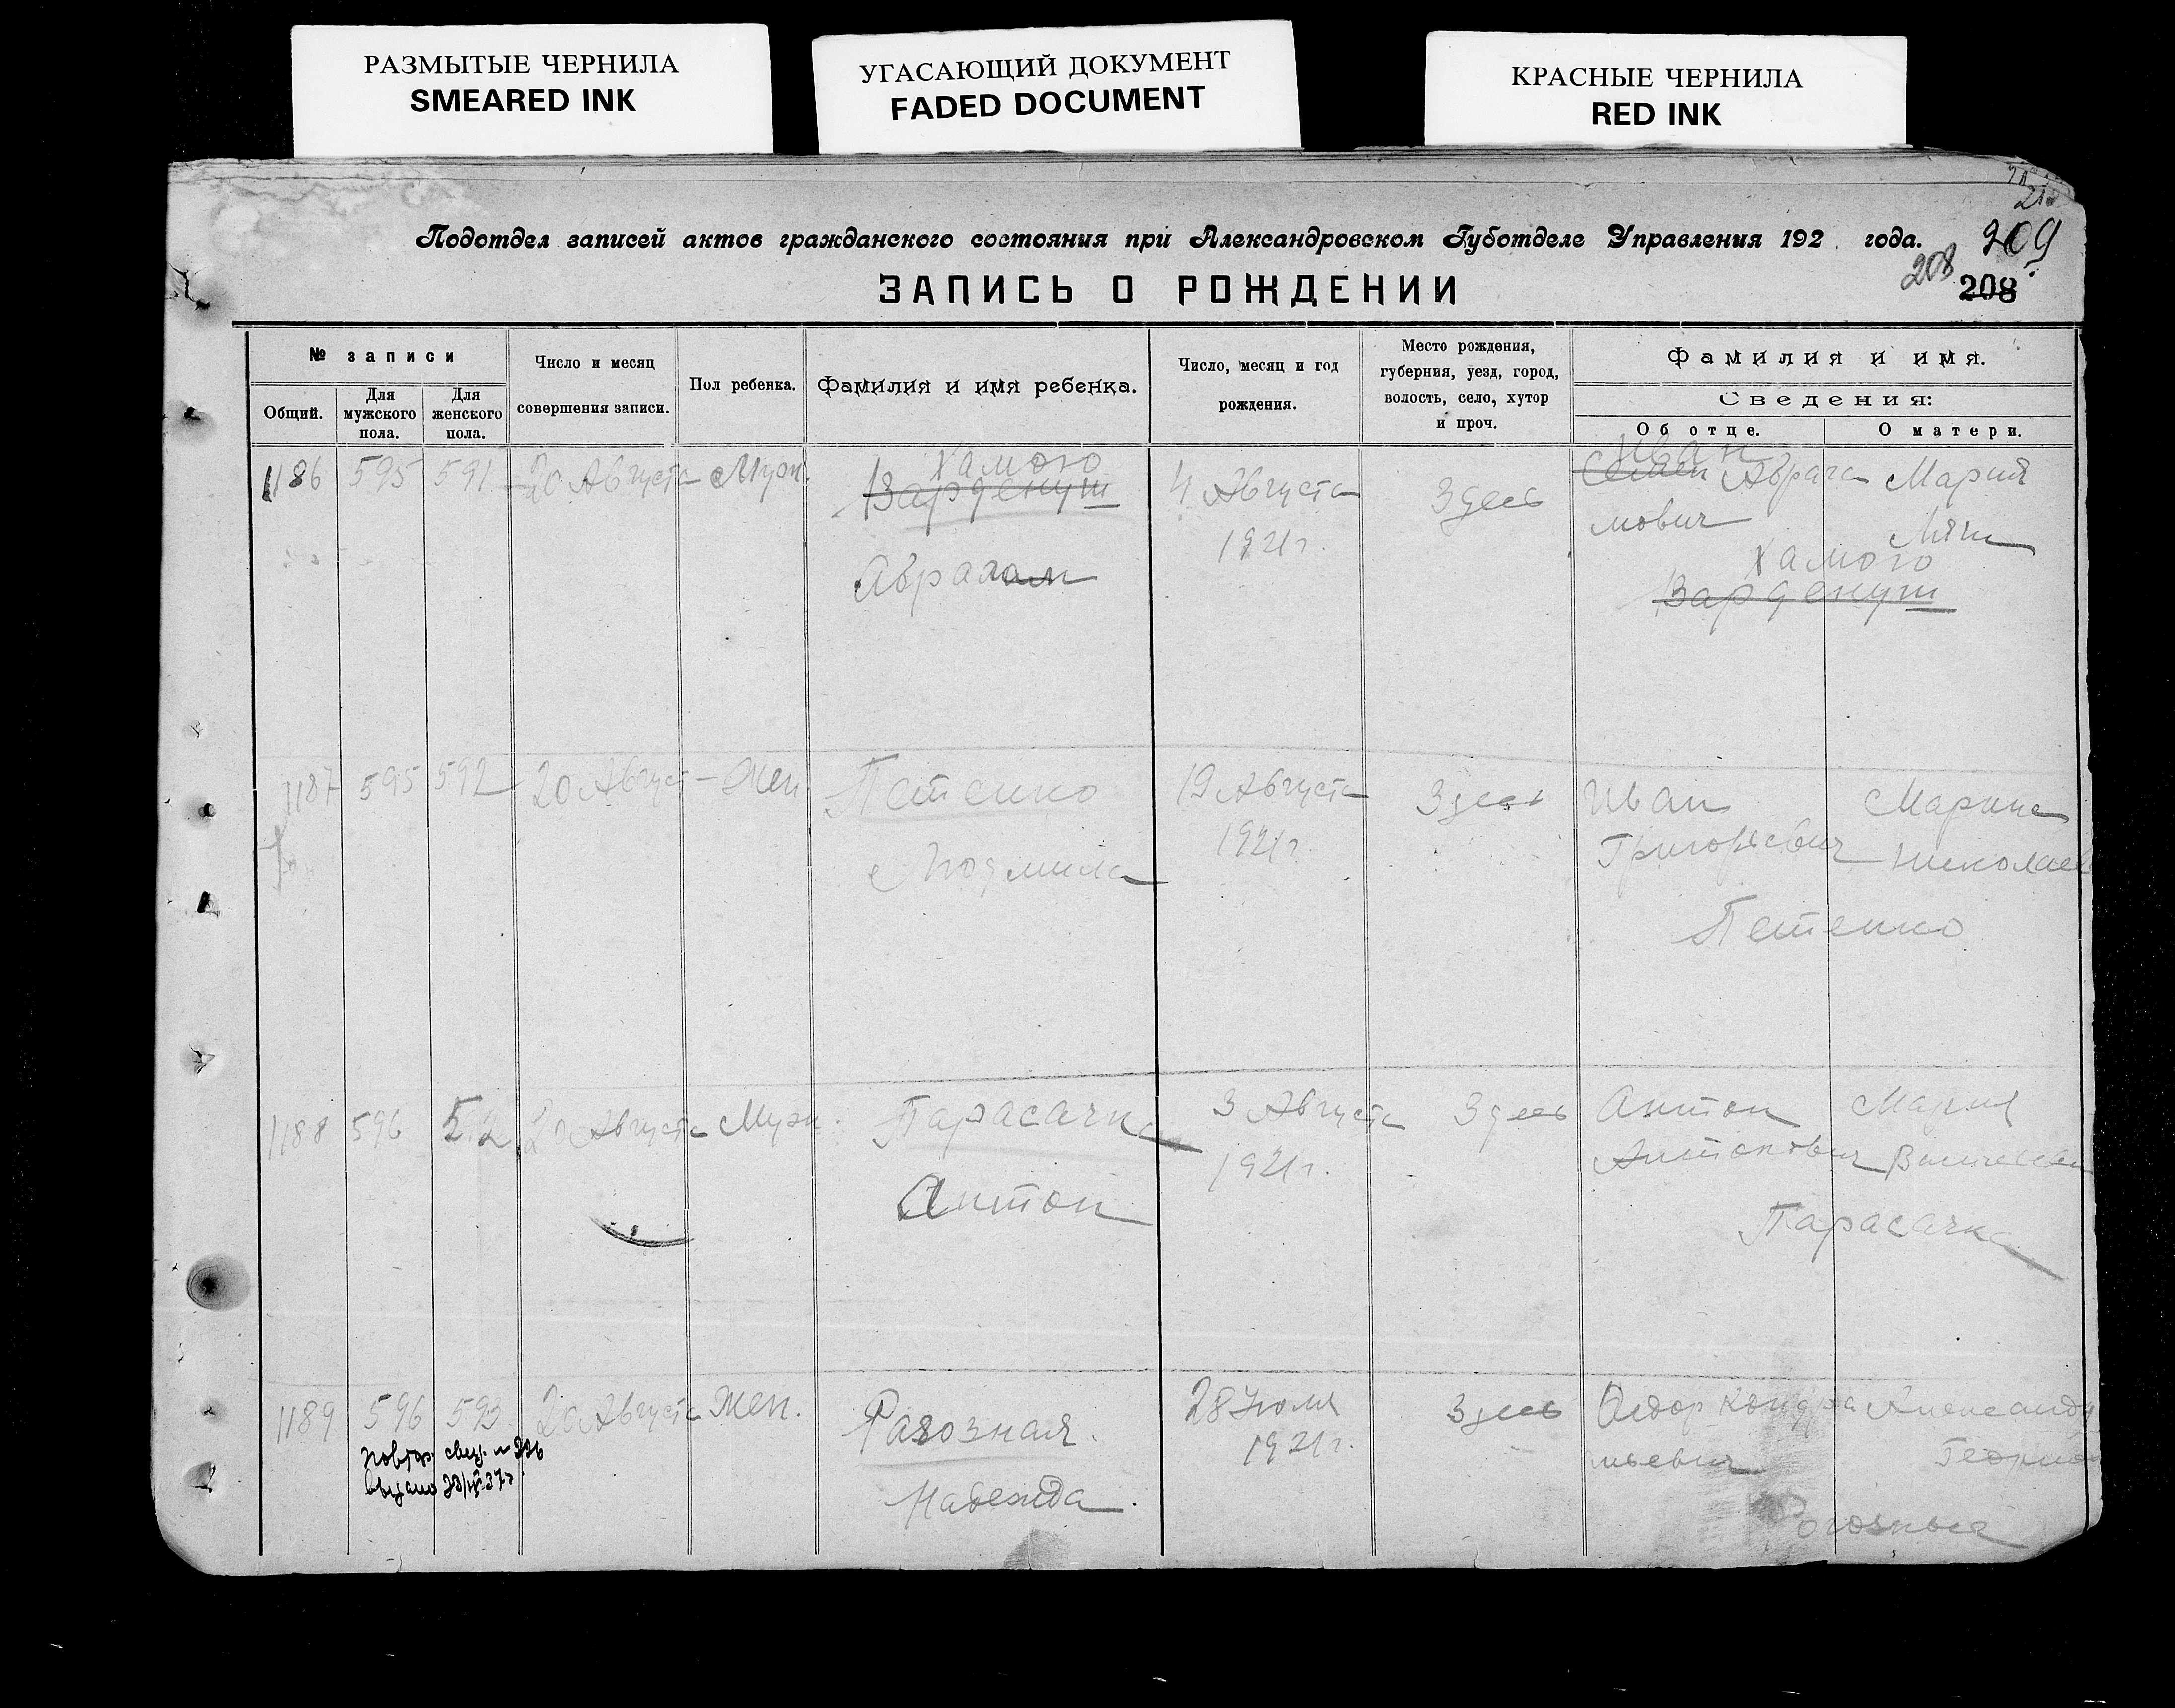 РАЗМЫТЫЕ ЧЕРНИЛА
SMEARED INK
УГАСАЮЩИЙ ДОКУМЕНТ
FADED DOCUMENT
КРАСНЫЕ ЧЕРНИЛА
RED INK
Подотдел записей актов гражданского состояния при Александровском Губотделе Управления 192 года.
209
208
208
ЗАПИСЬ О РОЖДЕНИИ
№ записи
Общий.
Для мужского пола.
Для женского пола.
Число и месяц
совершения записи.
Пол ребенка.
Фамилия и имя ребенка.
Число, месяц и год
рождения.
Место рождения,
губерния, уезд, город,
волость, село, хутор
и проч.
Фамилия и имя.
Сведения:
Об отце.
О матери.
1186 595 591 20 Августа Муж.
Хамого
Варденуш
Авраам
4 Августа
1921 г.
Здесь
Иван
Семен Абрамович
Мария
Хамого
Варденуш
1187 595 592 20 Август Жен.
Петенко
Людмила
19 Августа
1921 г.
Здесь
Иван
Григорьевич
Марина
Петенко
1188 596 20 Августа Муж.
Парасачка
Антон
3 Августа
1921 г.
Здесь
Антон
Антонович
Мария
Парасачка
1189 596 593 20 Августа Жен.
Рагозная.
Надежда.
28 Июля
1921 г.
Здесь